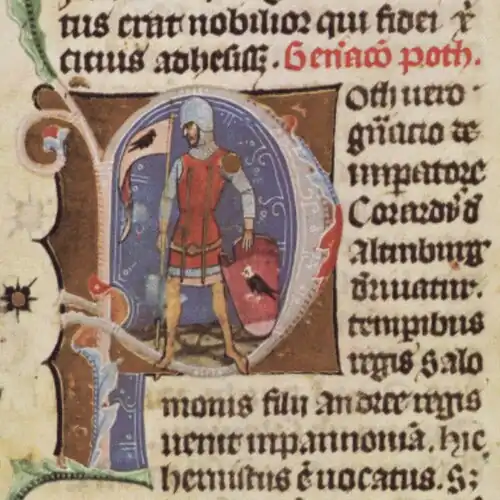 tus erat nobilior qui fidei χ
citius adhesiss. Gen̄acō poth.
Oth uero
gn̄acio de
imperatore
Corardus d
Altinburg
driuatur.
tempibus
regis Salo
monis filii Andree regis
uenit in pannoniā. Hic
hernistus ē uocatus. S;